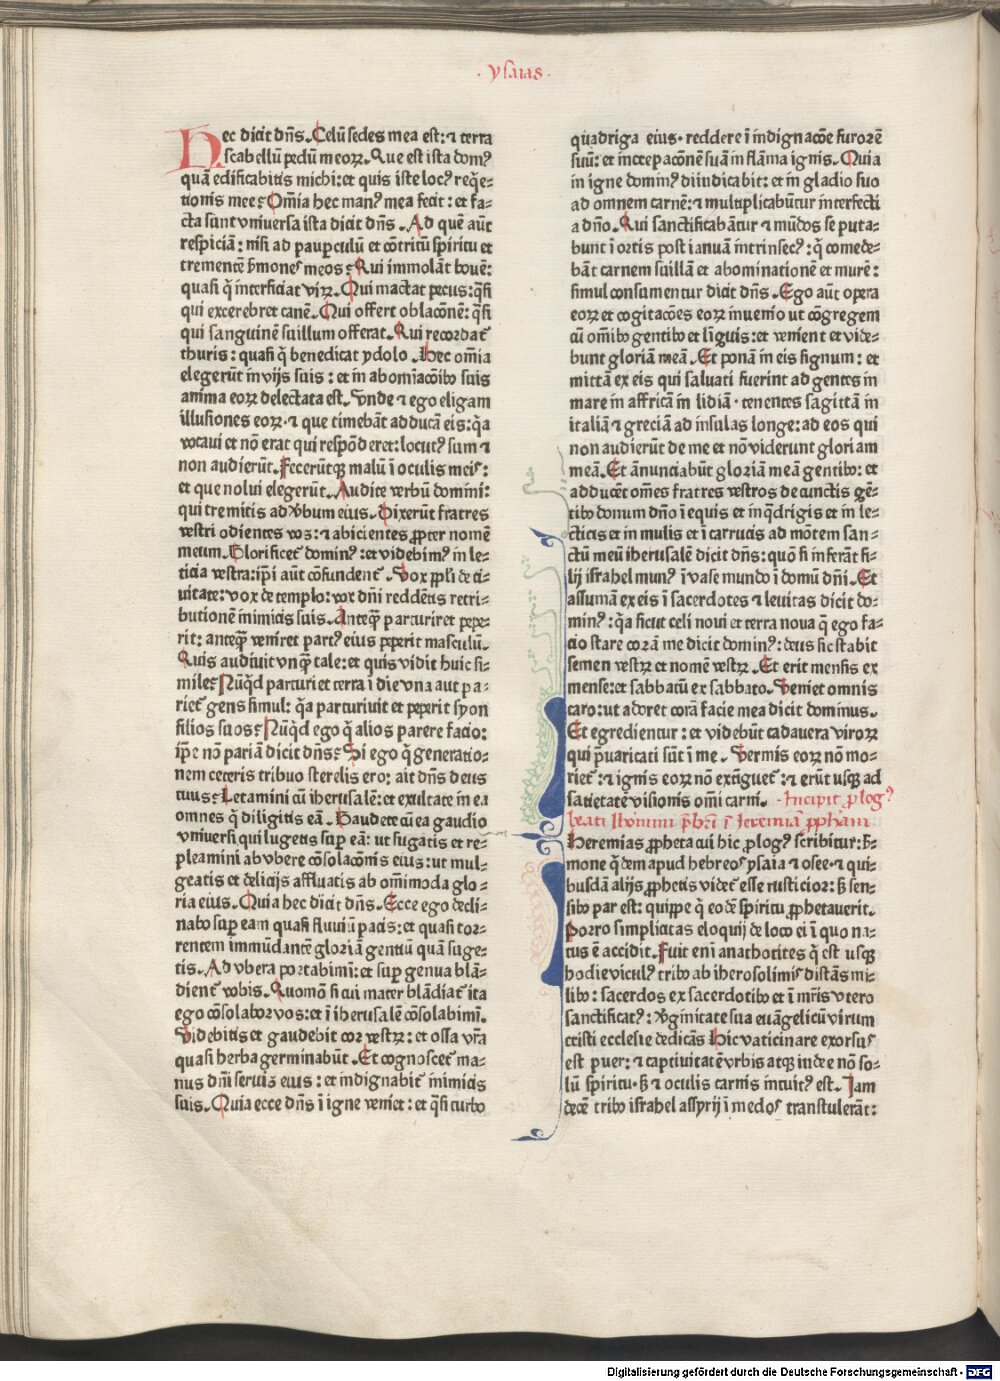 · ysaias ·
Hec dicit dn̄s. Celū sedes mea est: ⁊ terra
scabellū pedū meoꝝ. Que est ista domꝰ
quā edificabitis michi: et quis iste locꝰ reqͥe-
tionis mee? Om̄ia hec manꝰ mea fecit: et fa-
cta sunt vniuersa ista dicit dn̄s. Ad quē aūt
respiciā: nisi ad paupculū et cōtritū spiritu et
trementē ẜmones meos? Qui immolāt bouē:
quasi q̇ interficiat viꝝ. Qui mactat pecus: qͣsi
qui excerebret canē. Qui offert oblacōnē: qͣsi
qui sanguinē suillum offerat. Qui recordat᷑
thuris: quasi q̇ benedicat ydolo. Hec om̄ia
elegerūt in vijs suis: et in abomīacōibꝰ suis
anima eoꝝ delectata est. Vnde ⁊ ego eligam
illusiones eoꝝ: ⁊ que timebāt adducā eis: qͥa
vocaui et nō erat qui respōderet: locutꝰ sum ⁊
non audierūt. Feceruntqꝫ malū ī oculis meis:
et que nolui elegerūt. Audite verbū domini:
qui tremitis ad v̄bum eius. Dixerūt fratres
vestri odientes vos: ⁊ abicientes ꝓpter nomē
meum. Glorificet᷑ dominꝰ: et videbimꝰ in le-
ticia vestra: ip̄i aūt cōfundent᷑. Vox ppl̄i de ci-
uitate: vox de templo: vox dn̄i reddētis retri-
butionē inimicis suis. Anteqͣꝫ parturiret pepe-
rit: anteqͣꝫ veniret partꝰ eius peperit masculū.
Quis audiuit vnqͣꝫ tale: et quis vidit huic si-
mile? Nūqͥd parturiet terra ī die vna aut pa-
riet᷑ gens simul: qͥa parturiuit et peperit syon
filios suos? Nūqͥd ego q̇ alios parere facio:
ip̄e nō pariā dicit dn̄s? Si ego q̇ generatio-
nem ceteris tribuo sterelis ero: ait dn̄s deus
tuus? Letamini cū iherusalē: et exultate in ea
omnes q̇ diligitis eā. Gaudete cū ea gaudio
vniuersi qui lugetis suꝑ eā: ut sugatis et re-
pleamini ab vbere cōsolacōnis eius: ut mul-
geatis et delicijs affluatis ab om̄imoda glo-
ria eius. Quia hec dicit dn̄s. Ecce ego decli-
nabo suꝑ eam quasi fluuiū pacis: et quasi tor-
rentem immūdantē gloriā gentiū quā suge-
tis. Ad vbera portabimī: et suꝑ genua blā-
dient᷑ vobis. Quomō si cui mater blādiat᷑ ita
ego cōsolabor vos: et ī iherusalē cōsolabimī.
Videbitis et gaudebit cor vestꝝ: et ossa vr̄a
quasi herba germinabūt. Et cognoscet᷑ ma-
nus dn̄i seruis eius: et indignabit᷑ inimicis
suis. Quia ecce dn̄s ī igne veniet: et qͣsi turbo
quadriga eius: reddere ī indignacōe furorē
suū: et increpacōnē suā in flāma ignis. Quia
in igne dominꝰ diiudicabit: et in gladio suo
ad omnem carnē: ⁊ multiplicabūtur interfecti
a dn̄o. Qui sanctificabātur ⁊ mūdos se puta-
bunt ī ortis post ianuā intrinsecꝰ: q̇ comede-
bāt carnem suillā et abominationē et murē:
simul consumentur dicit dn̄s. Ego aūt opera
eoꝝ et cogitacōes eoꝝ inuenio ut cōgregem
cū om̄ibꝰ gentibꝰ et līguis: et venient et vide-
bunt gloriā meā. Et ponā in eis signum: et
mittā ex eis qui saluati fuerint ad gentes in
mare in affricā in lidiā: tenentes sagittā in
italiā ⁊ greciā ad insulas longe: ad eos qui
non audierūt de me et nō viderunt gloriam
meā. Et ānunciabūt gloriā meā gentibꝰ: et
adducēt om̄es fratres vestros de cunctis gē-
tibꝰ donum dn̄o ī equis et in qͣdrigis et in le-
cticis et in mulis et ī carrucis ad mōtem san-
ctū meū iherusalē dicit dn̄s: quō si inferāt fi-
lij israhel munꝰ ī vase mundo ī domū dn̄i. Et
assumā ex eis ī sacerdotes ⁊ leuitas dicit do-
minꝰ: qͥa sicut celi noui et terra noua q̇ ego fa-
cio stare coꝛā me dicit dominꝰ: deus sic stabit
semen vestꝝ et nomē vestꝝ. Et erit mensis ex
mense: et sabbatū ex sabbato. Veniet omnis
caro: ut adoret corā facie mea dicit dominus.
Et egredientur: et videbūt cadauera viroꝝ
qui p̄uaricati sūt ī me. Vermis eoꝝ nō mo-
riet᷑: ⁊ ignis eoꝝ nō extīguet᷑: ⁊ erūt usqꝫ ad
satietatē visionis om̄i carni. Incipit ꝓlogꝰ
beati Iheronimi p̄bri ī Jeremiā ꝓph̄am
Heremias ꝓpheta cui hic ꝓlogꝰ scribitur: ẜ-
mone qͥdem apud hebreos ysaia ⁊ osee ⁊ qui-
busdā alijs ꝓphetis videt᷑ esse rusticior: ẜ sen-
sibꝰ par est: quippe q̇ eodē spiritu ꝓphetauerit.
Porro simplicitas eloquij de loco ei ī quo na-
tus ē accidit. Fuit eni anathotites q̇ est usqꝫ
hodie viculꝰ tribꝰ ab iherosolimis distās mi-
libꝰ: sacerdos ex sacerdotibꝰ et ī mr̄is vtero
sanctificatꝰ: v̇ginitate sua euāgelicū virum
cristi ecclesie dedicās. Hic vaticinare exorsus
est puer: ⁊ captiuitatē vrbis atqꝫ iudee nō so-
lū spiritu: ẜ ⁊ oculis carnis intuitꝰ est. Iam
decē tribꝰ israhel assyrij ī medos transtulerāt:
Digitalisierung gefördert durch die Deutsche Forschungsgemeinschaft - DFG